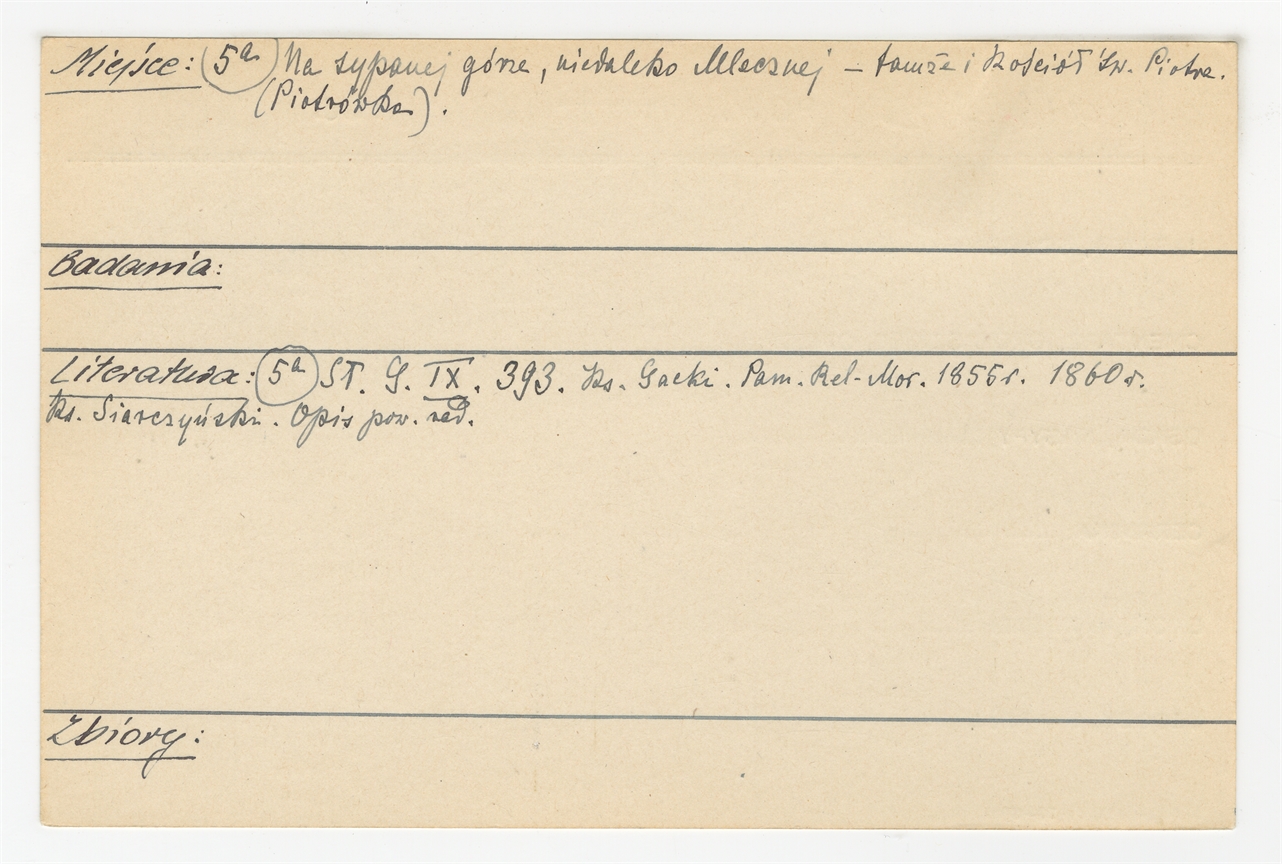 Miejsce: (5a) Na sypanej górze, niedaleko Mlecznej – tamże i Kościół Św. Piotra.
(Piotrówka).
Badania:
Literatura: (5a) Sł. G. IX. 393. Ks. Gacki. Pam. Rel-Mor. 1855r. 1860r.
Ks. Siarczyński. Opis pow. rad.
Zbiory: